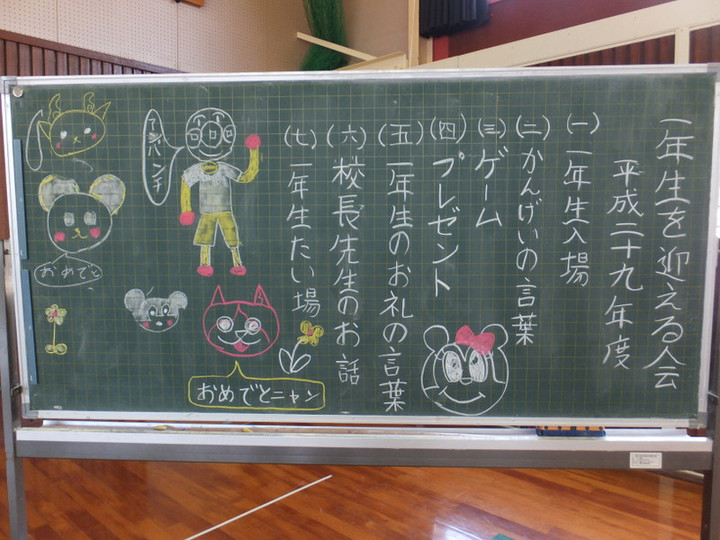 一年生を迎える会
平成二十九年度
(一) 一年生入場
(二) かんげいの言葉
(三) ゲーム
(四) プレゼント
(五) 一年生のお礼の言葉
(六) 校長先生のお話
(七) 一年生たい場
アンパンチ
おめでとニャン
おめでと